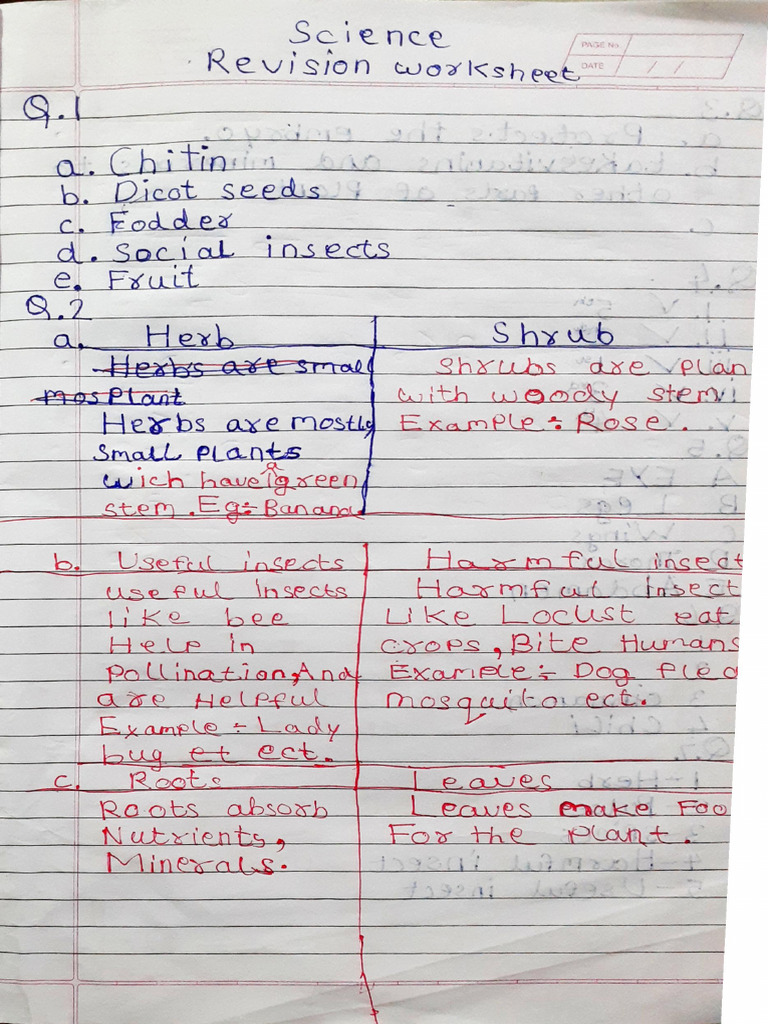 Science
Revision worksheet
PAGE No
DATE / /
Q.1
a. Chitin
b. Dicot seeds
c. Fodder
d. Social insects
e. Fruit
Q.2
a. Herb
Shrub
Herbs are small
mos Plant
Herbs are mostly
small plants
wich have a green
stem. Eg:- Banana
Shrubs are plan
with woody stem
Example :- Rose.
b. Useful insects
Harmful insect
useful insects
like bee
Help in
Pollination, And
are Helpful
Example :- Lady
bug et ect.
Harmful Insect
Like Locust eat
crops, Bite Humans
Example :- Dog flea
mosquito ect.
c. Roots
Leaves
Roots absorb
Nutrients,
Minerals.
Leaves make Foo
For the plant.